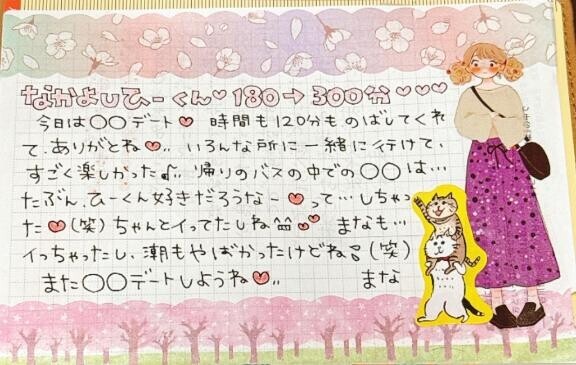 なかよしひーくん♡180→300分♡♡♡
今日は〇〇デート♡ 時間も120分ものばしてくれ
て、ありがとね♡.. いろんな所に一緒に行けて、
すごく楽しかった♪.. 帰りのバスの中での〇〇は…
たぶん、ひーくん好きだろうなー♡って…しちゃっ
た♡(笑)ちゃんとイってたしね^^♡♡ まなも…
イっちゃったし、潮もやばかったけどね!(笑)
また〇〇デートしようね♡.. まな